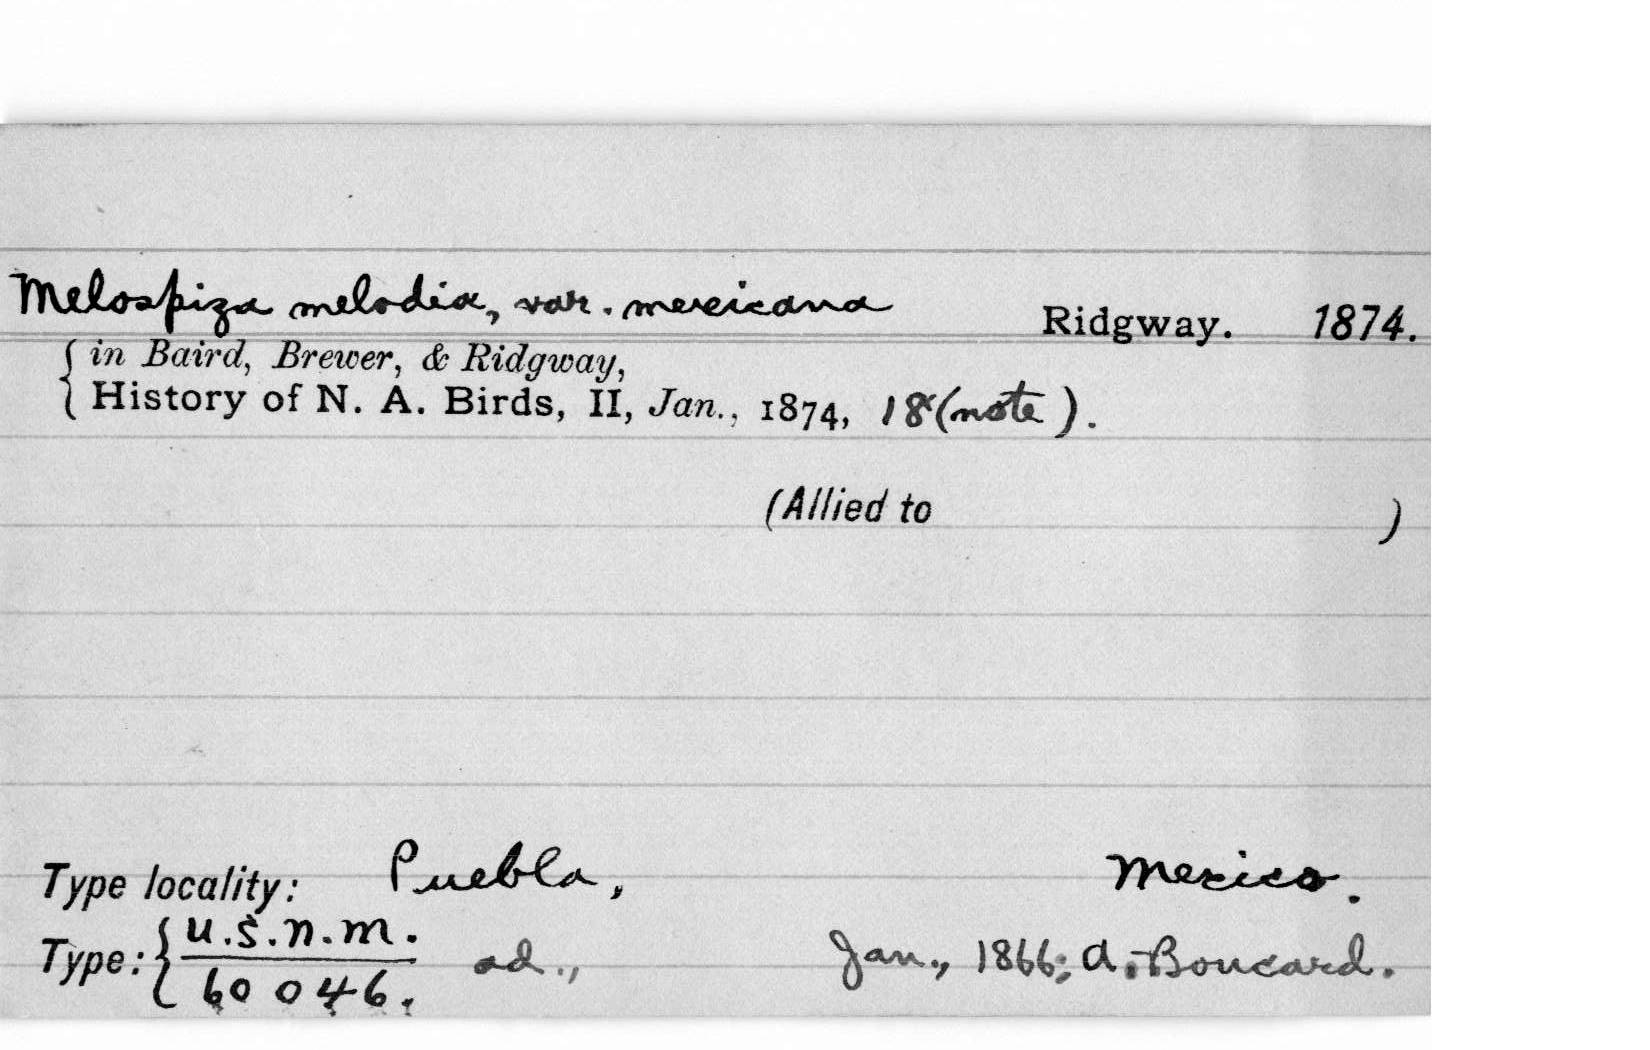 Melospiza melodia, var. mexicana Ridgway. 1874.
{ in Baird, Brewer, & Ridgway,
History of N. A. Birds, II, Jan., 1874, 18 (note).
(Allied to )
Type locality: Puebla, Mexico.
Type: { U.S.N.M.
60046. ad., Jan., 1866; A. Boucard.